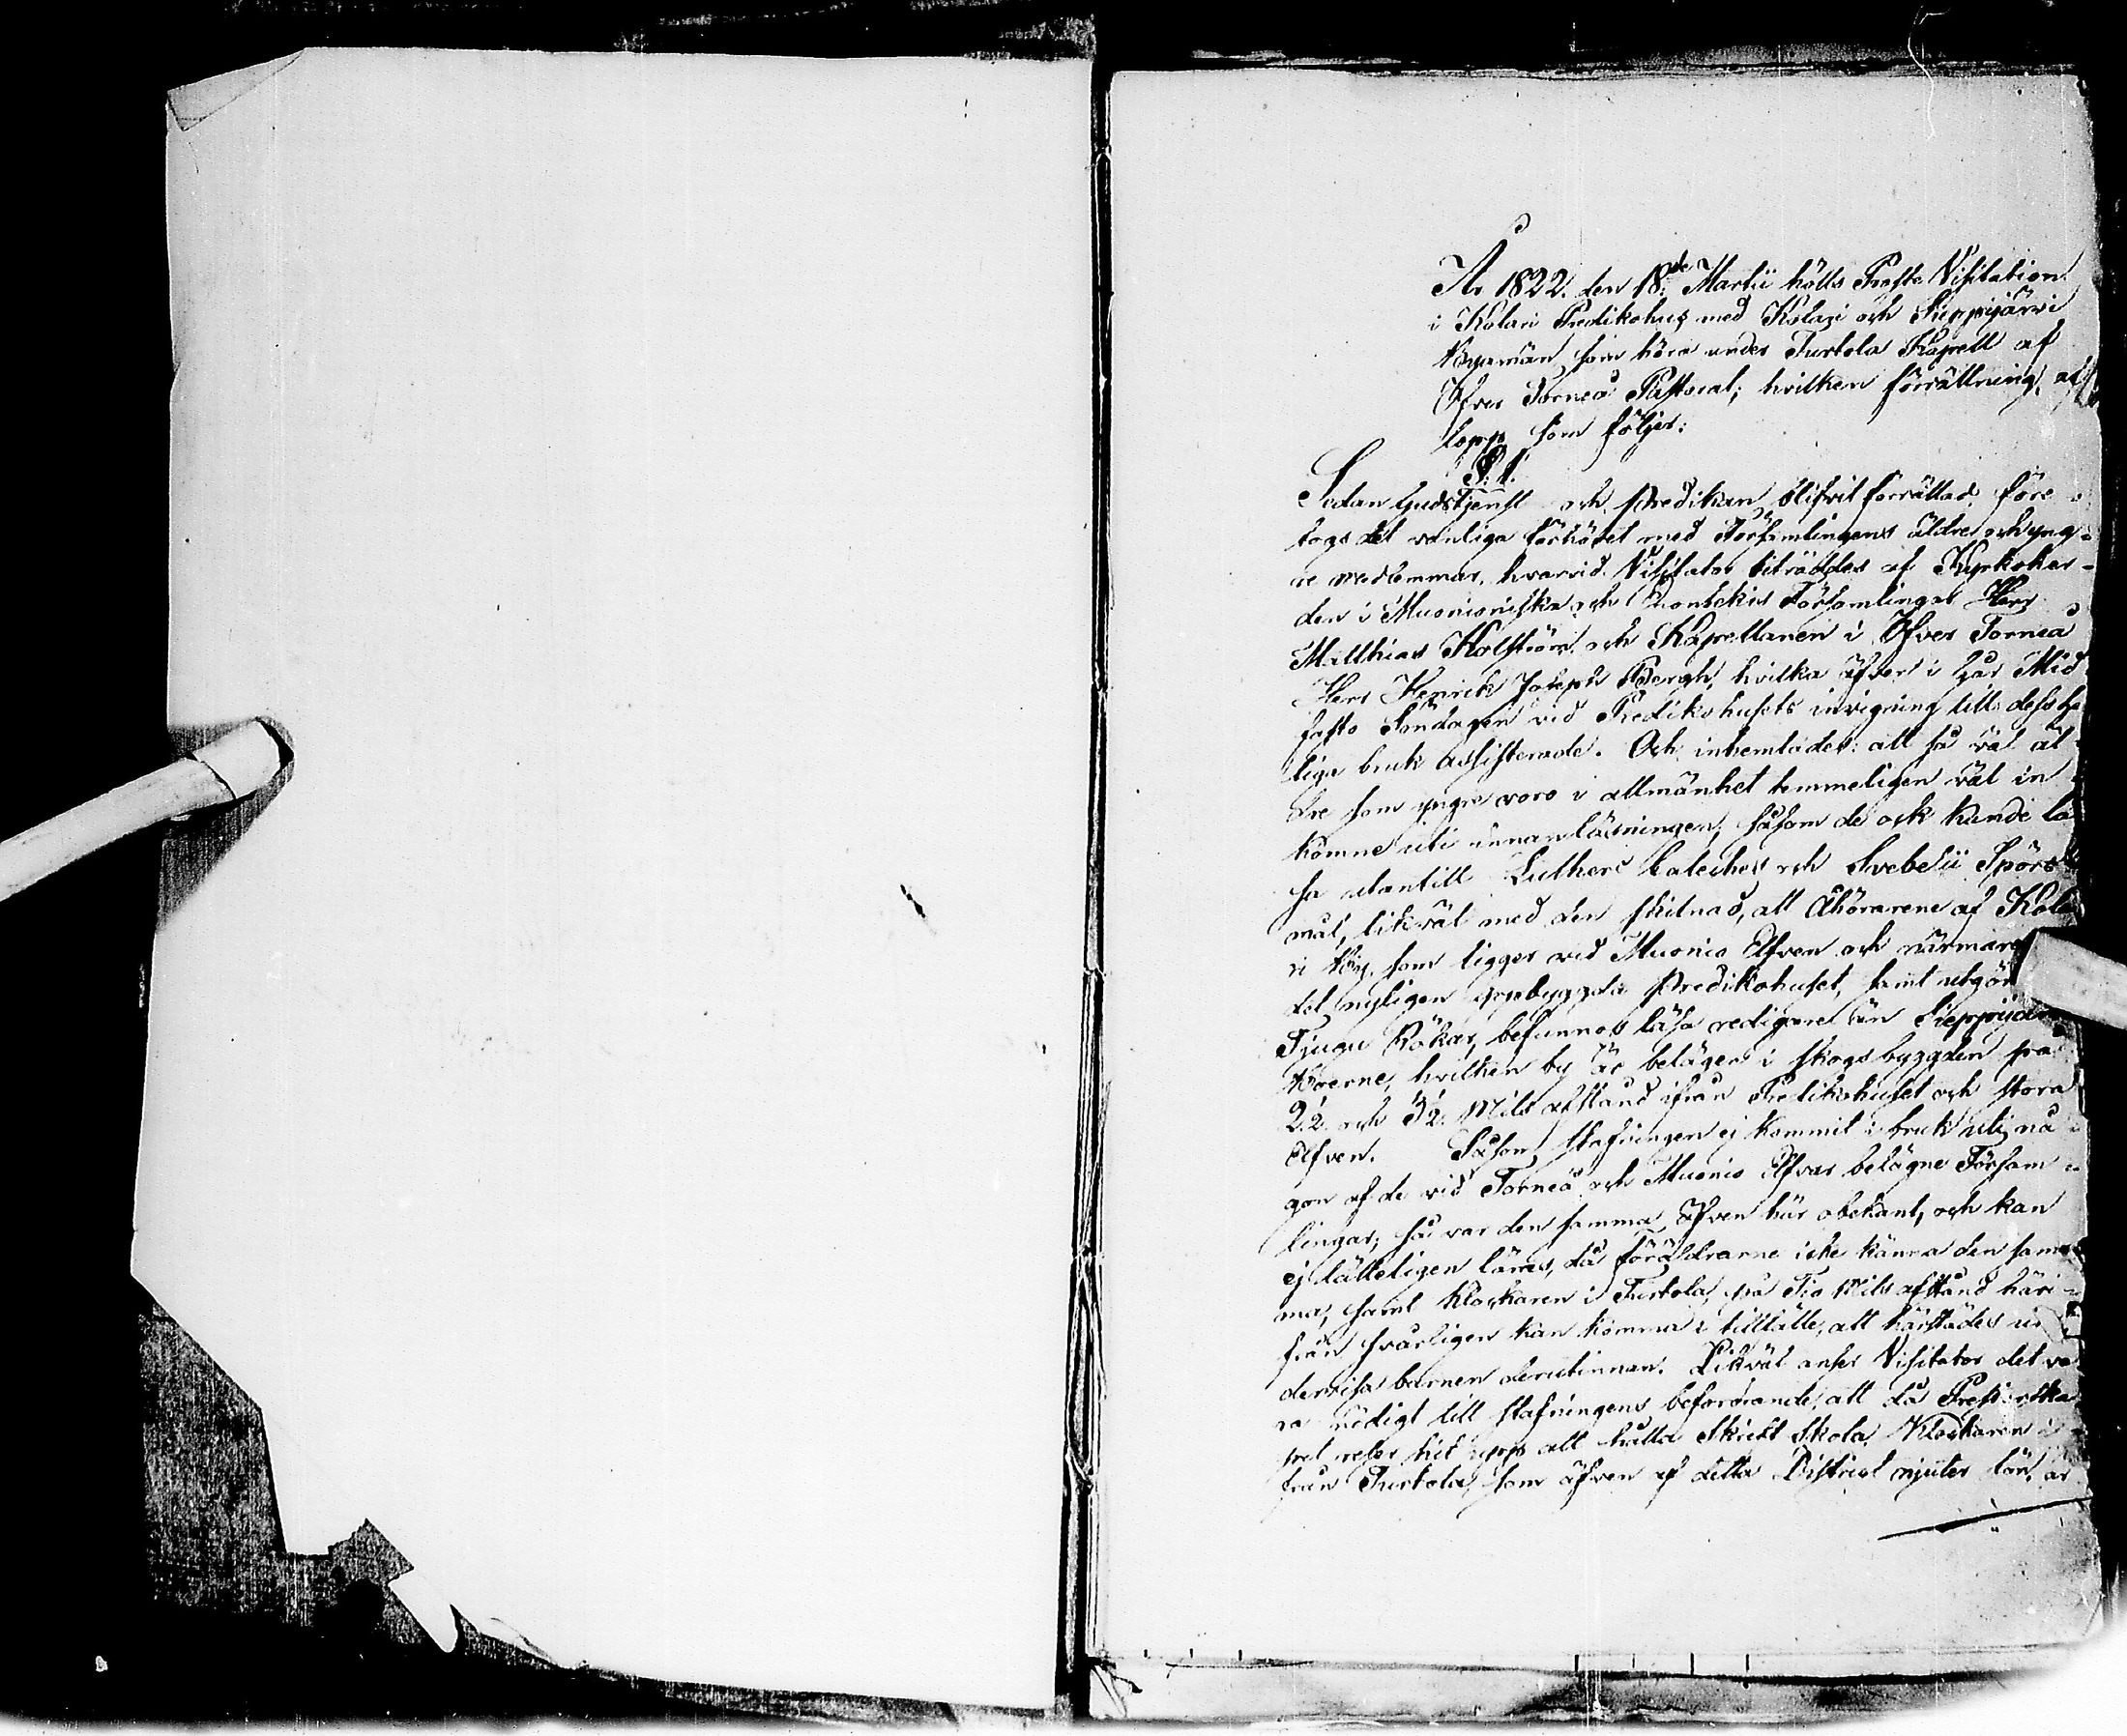 År 1822. den 18:de Martii hölls Proste Visitation
i Kolari Predikohus med Kolari och Sieppijärvi
Byamän, som höra under Turtola Kapell af
Öfver Torneå Pastorat; hvilken förrättning, af-
lopp som följer:
§. 1.
Sedan Gudstjenst och predikan blifvit förrättad, före-
togs det vanliga förhöret med Församlingens äldre och yng-
re medlemmar, hvarvid Visitator biträddes af Kyrkoher-
den i Muonioniska och Enontekis Församlingar Herr
Matthias Kolström och Kapellanen i Öfver Torneå
Herr Henrik Joseph Bergh, hvilka äfven i går Mid-
fasto Söndagen vid Predikohusets invigning till dess he-
liga bruk assisterade. Och inhemtades: att så väl äl-
dre som yngre voro i allmänhet temmeligen väl in-
komne uti innanläsningen, såsom de ock kunde lä-
sa utantill Lutheri Cateches och Svebelii Spörs-
mål, likväl med den skilnad, att Åhörarene af Kola-
ri By, som ligger vid Muonio Elfven och närmare
det nyligen uppbyggda Predikohuset, samt utgör
Tjugu Rökar, befunnos läsa redigare än Sieppijärvi
Boerne, hvilken by är belägen i skogsbyggden på
2 1/2 och 3 1/2 Mils afstånd ifrån Predikohuset och stora
Elfven. Såsom stafningen ej kommit i bruk uti nå-
gon af de vid Torneå och Muonio Elfvar belägne Försam-
lingar, så var den samma äfven här obekant, och kan
ej lätteligen läras, då föräldrarne icke känna den sam-
ma, samt Klockaren i Turtola, på Tio Mils afstånd häri-
från svårligen kan komma i tillfälle, att härstädes un-
dervisa barnen derutinnan. Likväl anser Visitator det va-
ra nödigt till stafningens befordrande, att då Presterska-
pet reser hit upp att hålla Skrift Skola, Klockaren i-
från Turtola, som äfven af detta District njuter lön, är